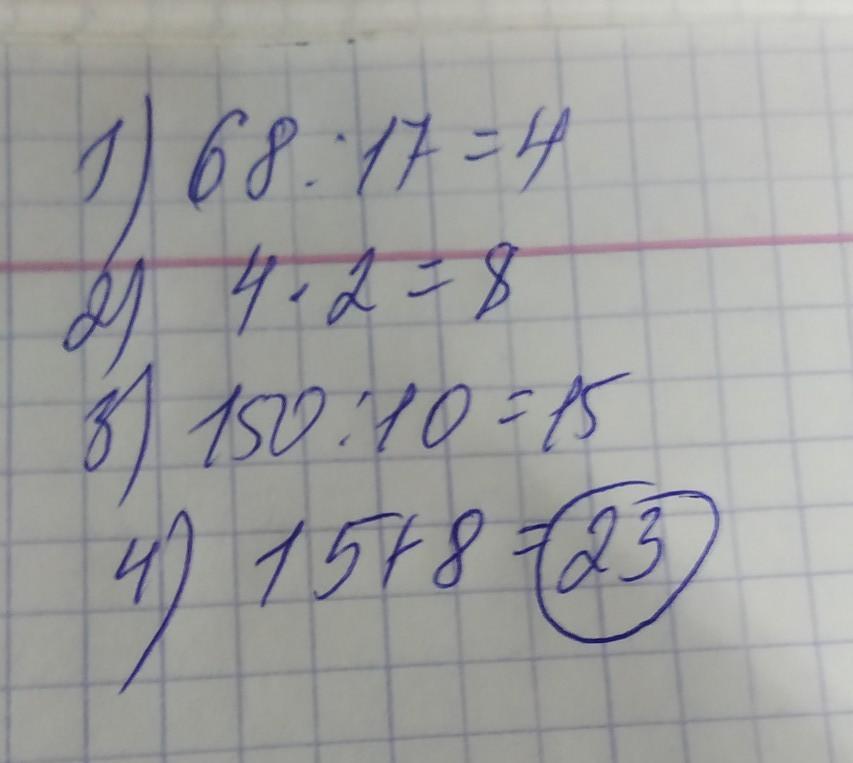 1) 68 : 17 = 4
2) 4 · 2 = 8
3) 150 : 10 = 15
4) 15 + 8 = 23